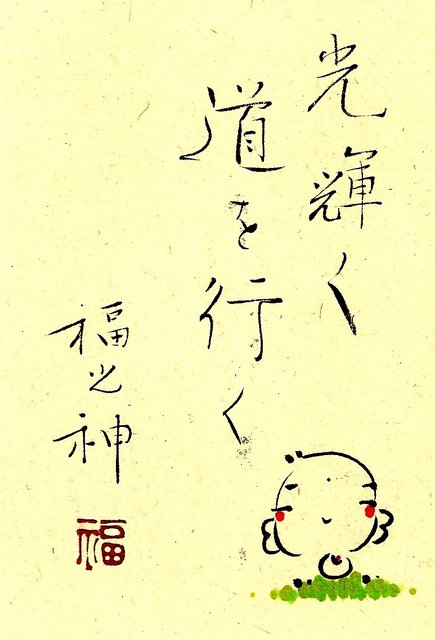 光輝く
道を行く
福之神
福